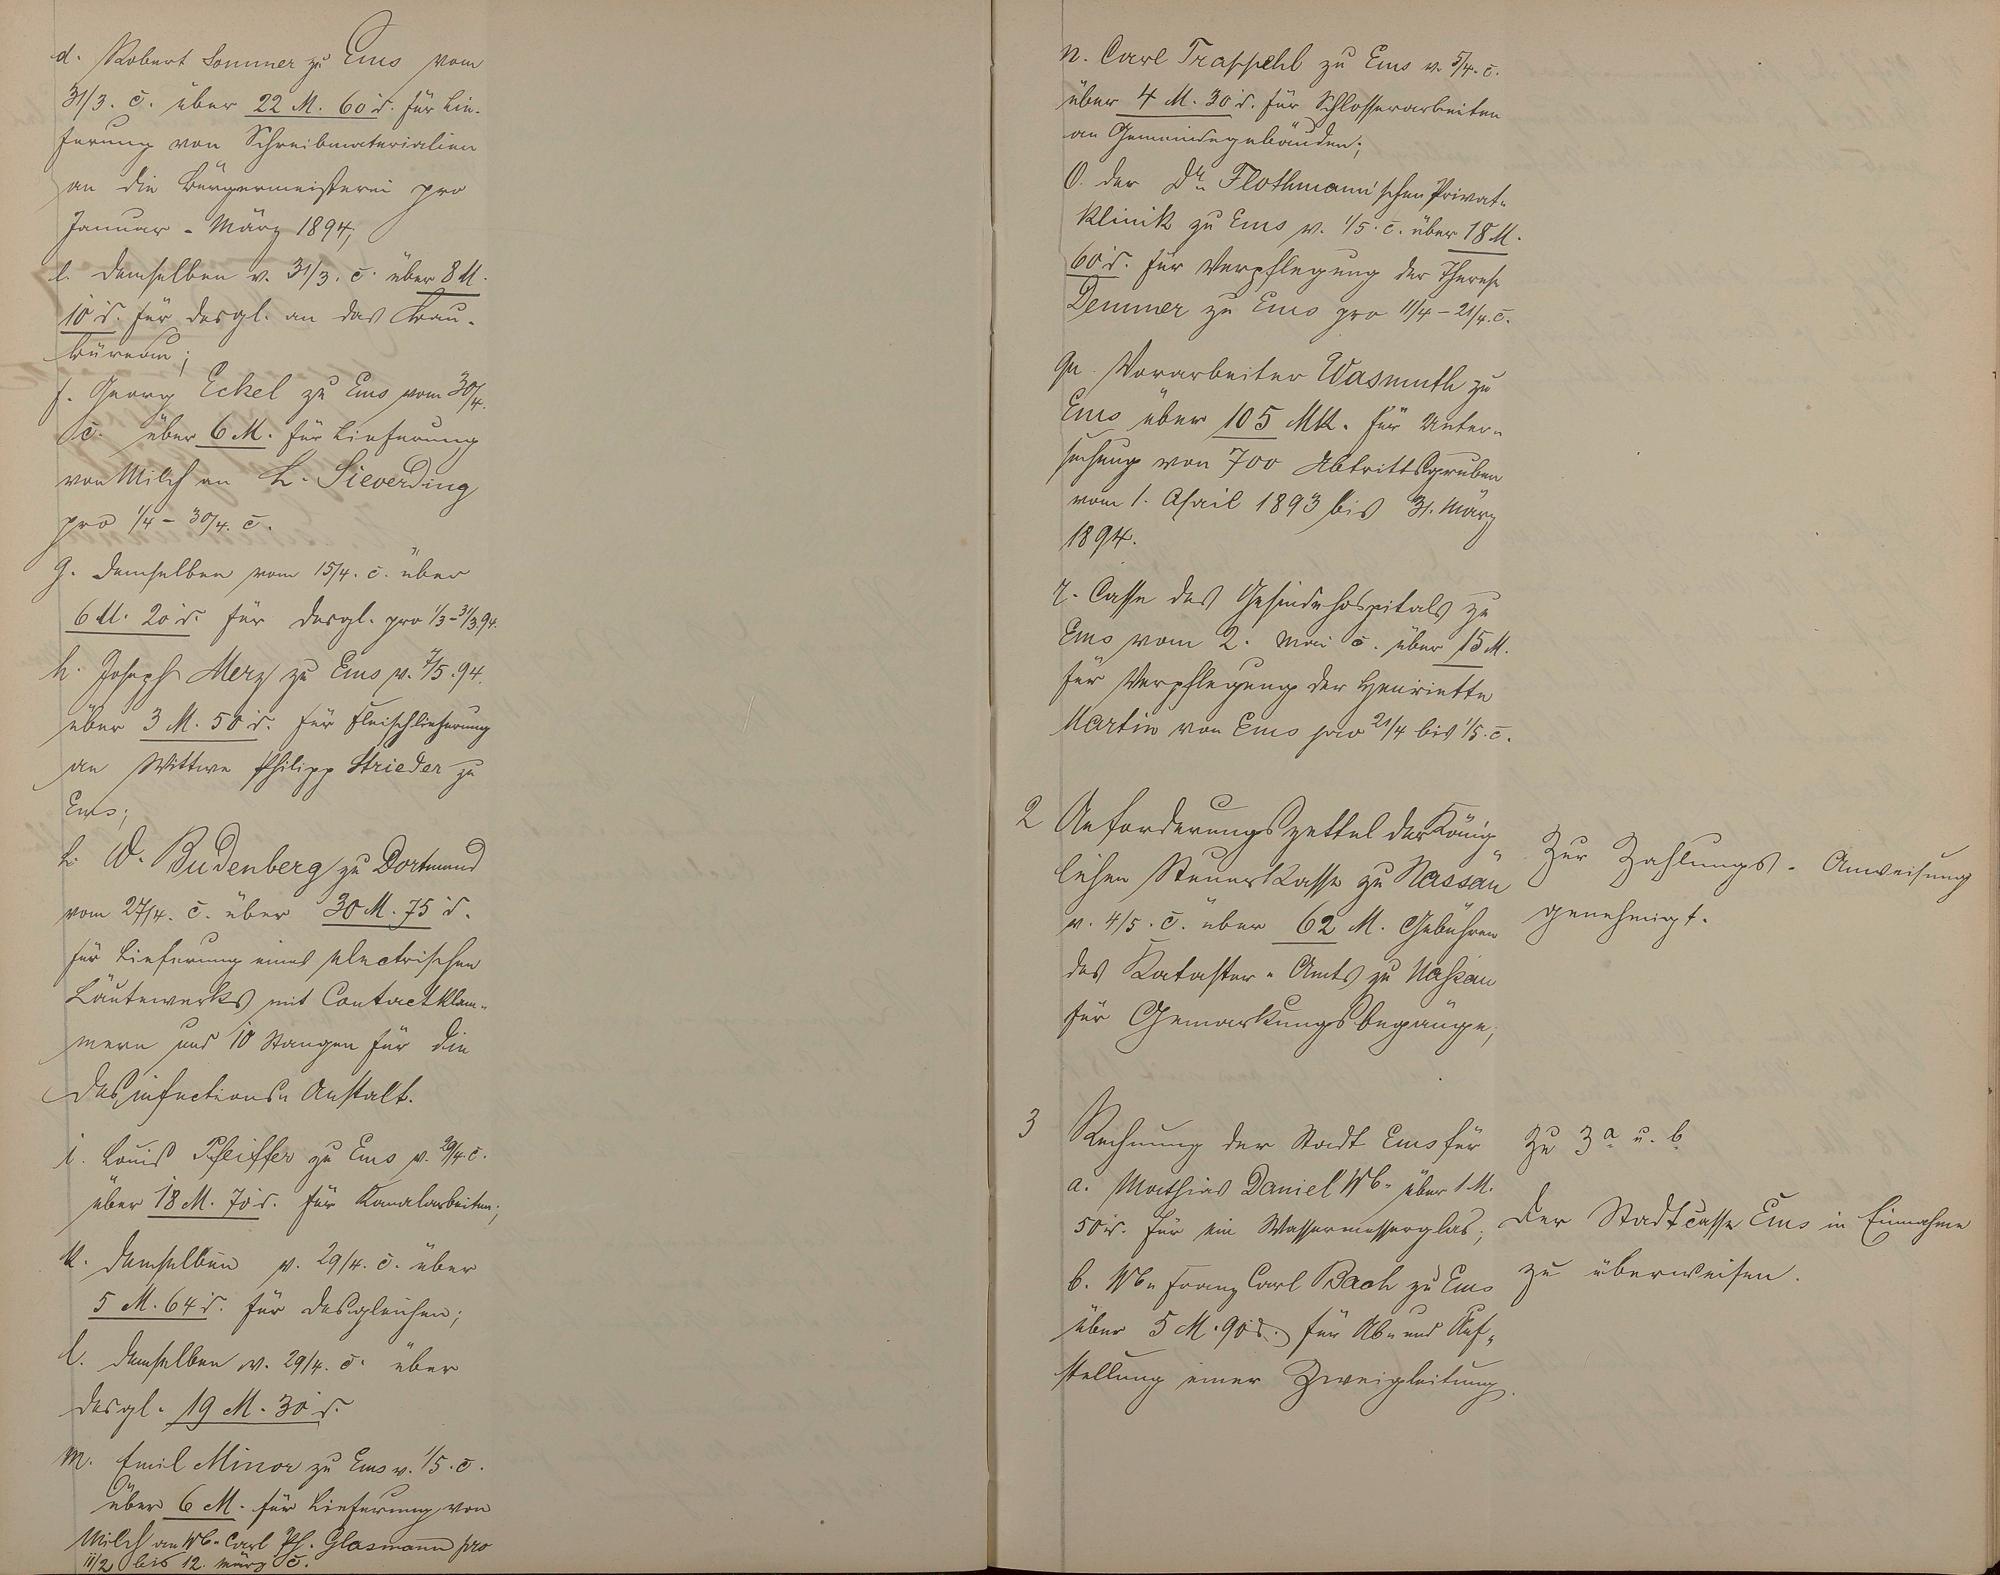 d. Robert Sommer zu Ems vom
31/3. c. über 22 M. 60 d. für Lie-
ferung von Schreibmaterialien
an die Bürgermeisterei pro
Januar - März 1894;
e. demselben v. 31/3. c. über 8 M.
10 d. für desgl. an das Bau-
büreau;
f. Georg Eckel zu Ems vom 30/4.
c. über 6 M. für Lieferung
von Milch an L. Sieverding
pro 1/4 - 30/4. c.
g. demselben vom 15/4. c. über
6 M. 20 d. für desgl. pro 1/3 - 31/3.94.
h. Joseph Merz zu Ems v. 7/5.94.
über 3 M. 50 d. für Fleischlieferung
an Wittwe Philipp Strieder zu
Ems;
h. W. Budenberg zu Dortmund
vom 27/4. c. über 30 M. 75 d.
für Lieferung eines electrischen
Läutewerks mit Contactklam-
mern und 10 Stangen für die
Desinfections-Anstalt.
i. Louis Pfeiffer zu Ems v. 29/4. c.
über 18 M. 70 d. für Kanalarbeiten;
k. demselben v. 29/4. c. über
5 M. 64 d. für desgleichen;
l. demselben v. 29/4. c. über
desgl. 19 M. 30 d.
m. Emil Minor zu Ems v. 1/5. c.
über 6 M. für Lieferung von
Milch an Wb. Carl Ph. Glasmann pro
11/2 bis 12. März c.
n. Carl Trappehl zu Ems v. 5/4. c.
über 4 M. 30 d. für Schlosserarbeiten
an Gemeindegebäuden;
O. der Dr. Flothmann'schen Privat-
klinik zu Ems v. 1/5. c. über 18 M.
60 d. für Verpflegung der Therese
Demmer zu Ems pro 11/4 - 21/4. c.
q. Vorarbeiter Wasmuth zu
Ems über 105 Mk. für Unter-
suchung von 700 Abtrittsgruben
vom 1. April 1893 bis 31. März
1894.
r. Casse des Gesindehospitals zu
Ems vom 2. Mai c. über 15 M.
für Verpflegung der Henriette
Martin von Ems pro 21/4 bis 1/5. c.
2 Anforderungszettel der König-
lichen Steuerkasse zu Nassau
v. 4/5. c. über 62 M. Gebühren
des Kataster-Amts zu Nassau
für Gemarkungsbegänge;
Zur Zahlungs-Anweisung
genehmigt.
3 Rechnung der Stadt Ems für
a. Mathias Daniel Wb. über 1 M.
50 d. für ein Wassermesserglas;
b. Wb. Franz Carl Bach zu Ems
über 5 M. 90 d. für Ab- und Auf-
stellung einer Zweigleitung.
Zu 3 a u. b
der Stadtcasse Ems in Einnahme
zu überweisen.